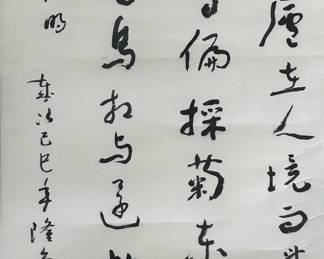 廬在人境而
偏採菊东
鳥相与還
明
歲次己巳年隆冬